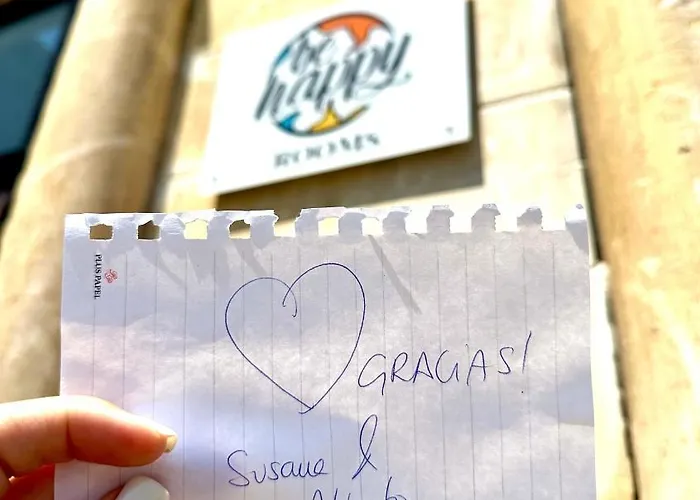 be
happy
ROOMS
PLUS PAPEL
GRACIAS!
Susana &